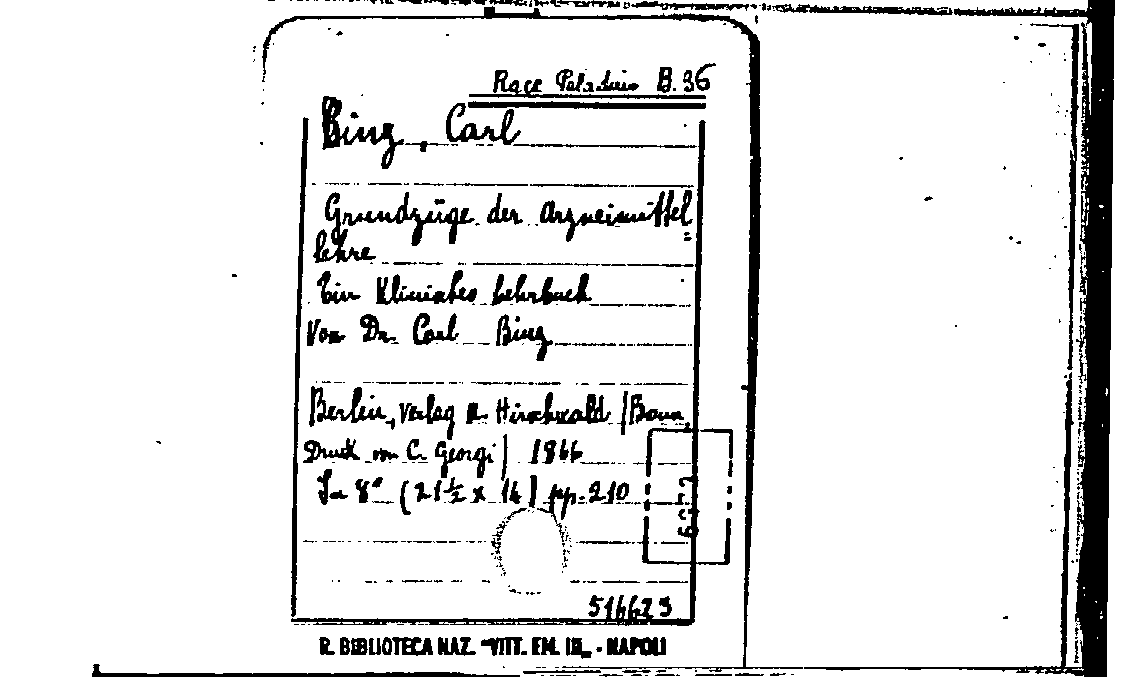 Race Paladino B. 36
Binz, Carl
Grundzüge der Arzneimittel=
lehre
Ein Klinisches Lehrbuch
Von Dr. Carl Binz
Berlin, Verlag A. Hirschwald (Bonn,
Druck von C. Georgi) 1866
In 8° (21½ x 14) pp. 210
516623
R. BIBLIOTECA NAZ. "VITT. EM. III„ - NAPOLI